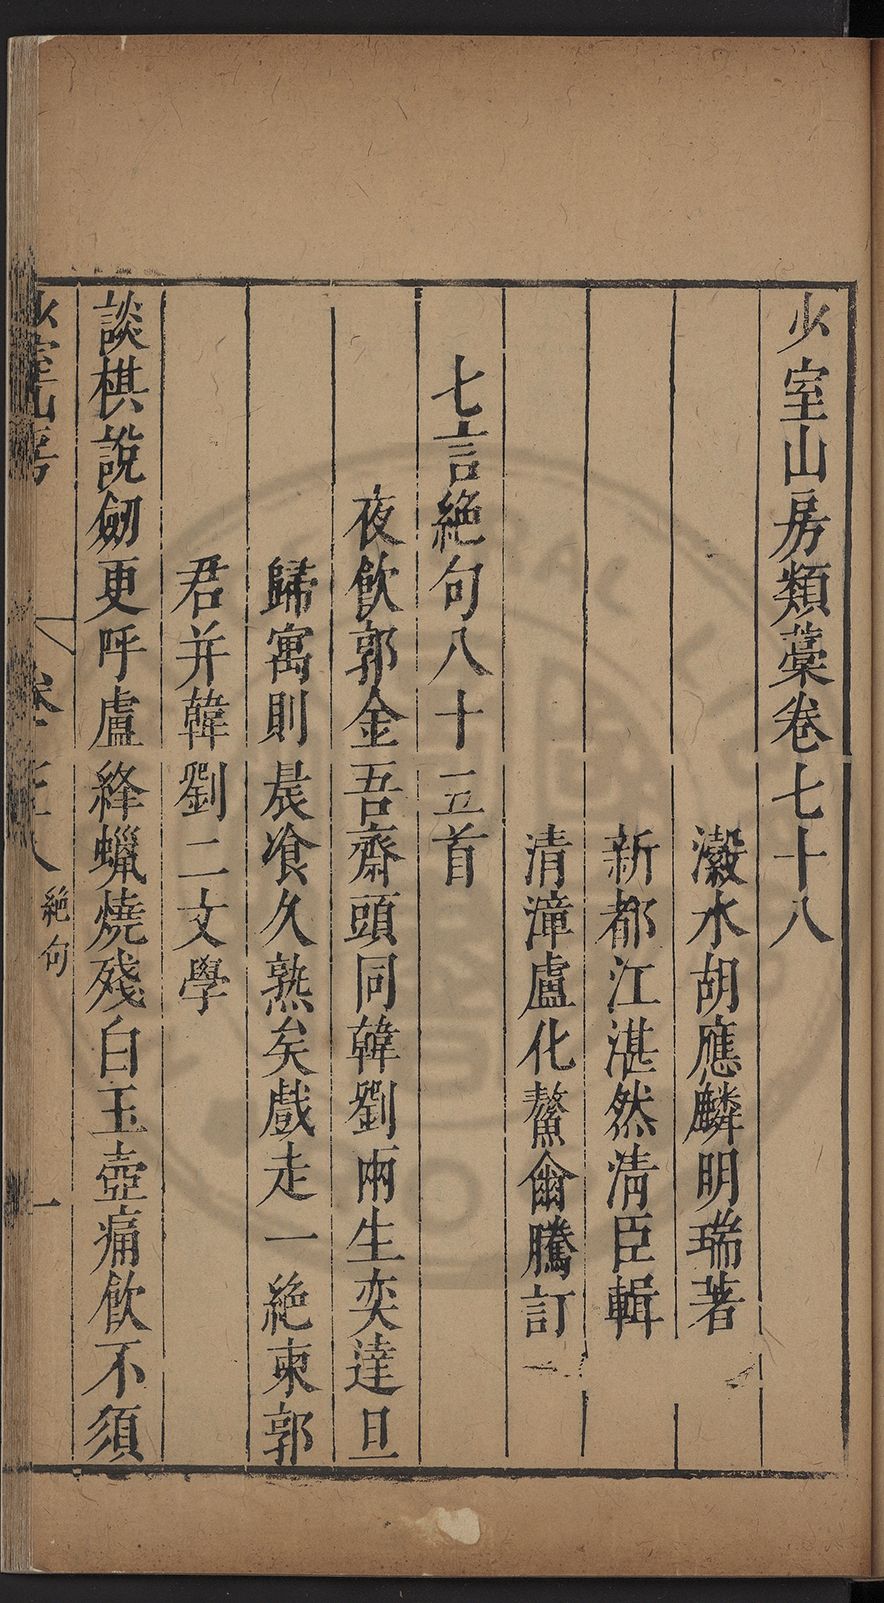 少室山房類藁卷七十八
瀫水胡應麟明瑞著
新都江湛然清臣輯
清漳盧化鰲爾騰訂
七言絕句八十五首
夜飲郭金吾齋頭同韓劉兩生奕達旦
歸寓則晨飡久熟矣戲走一絕柬郭
君并韓劉二文學
談棋說劒更呼盧絳蠟燒殘白玉壺痛飲不須
少室山房
卷七十八
絕句
一